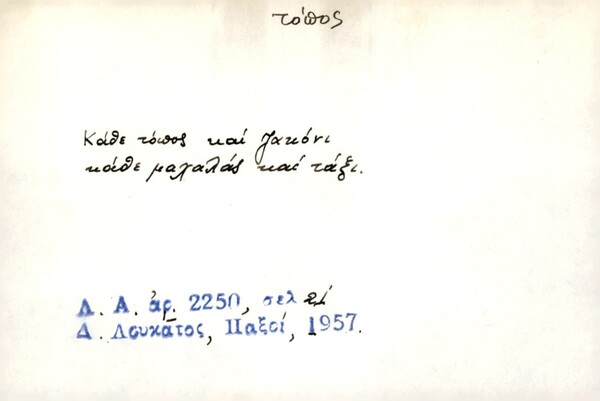 τόπος
Κάθε τόπος καί ζακόνι
κάθε μαχαλάς καί τάξι.
Λ. Α. ἀρ. 2250, σελ 21
Δ. Λουκᾶτος, Παξοί, 1957.